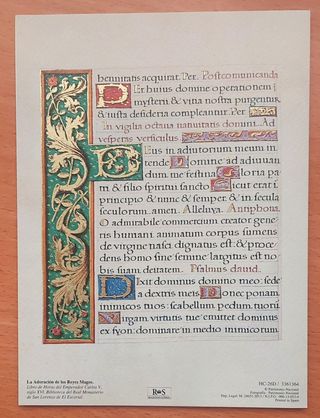 hennitatis acquirat. Per. Postcomunicanda
Per huius domine operationem
mysterii & vitia nostra purgentur,
& iusta desideria compleantur. Per.
In vigilia octava natuitatis domini. Ad
vesperas versiculus
Deus in adiutorium meum in
tende Domine ad adiuuan
dum me festina Gloria pa
tri & filio spiritui sancto Sicut erat i
principio & nunc & semper & in secula
seculorum. amen. Alleluya. Antyphona.
O admirabile commercium creator gene
ris humani animatum corpus sumens
de virgine nasci dignatus est: & proce
dens homo sine semine largitus est no
bis suam deitatem. Psalmus dauid.
Dixit dominus domino meo: sede
a dextris meis Donec ponam
inimicos tuos: scabellum pedum tuorum
Virgam virtutis tue emittet dominus
ex syon: dominare in medio inimicorum
La Adoración de los Reyes Magos.
Libro de Horas del Emperador Carlos V,
siglo XVI. Biblioteca del Real Monasterio
de San Lorenzo de El Escorial.
HC-26D / 3361364
© Patrimonio Nacional
Fotografía: Patrimonio Nacional
Printed in Spain